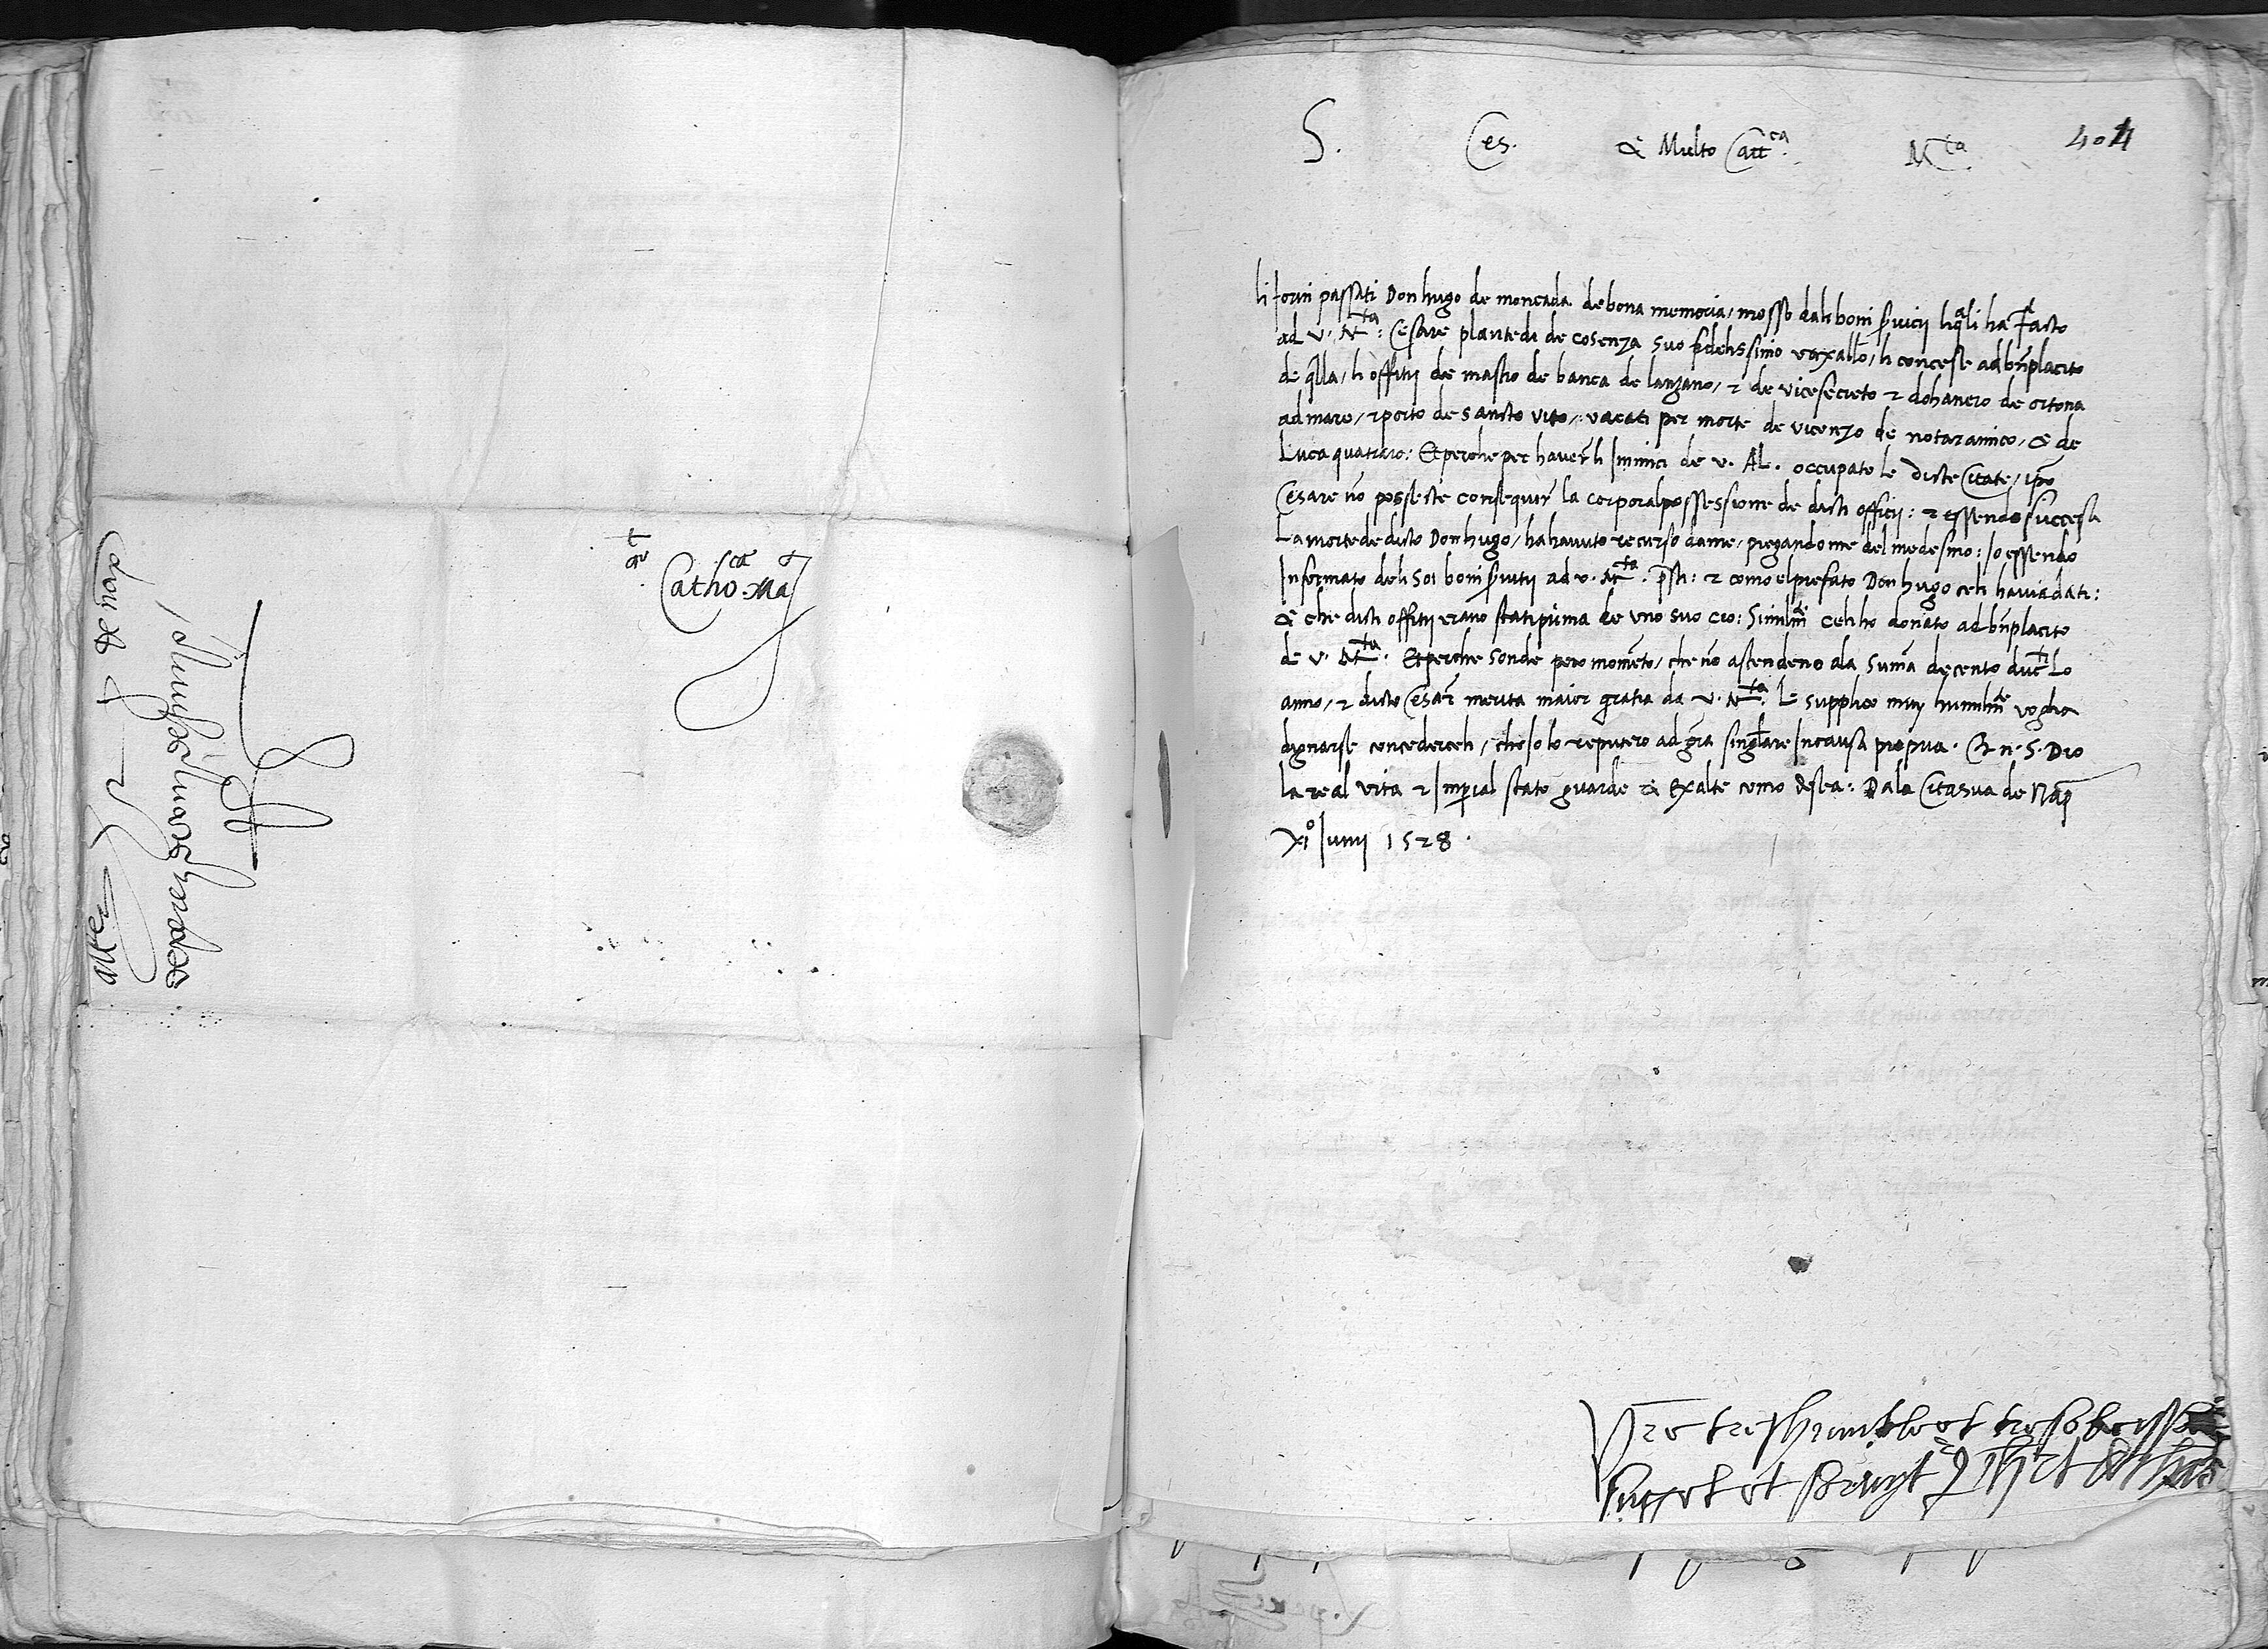 Catho. Ma
de nap
S. Ces. & Multo Catt.ca M.ta 404
li jorni passati Don hugo de moncada de bona memoria, mosso dali boni servicii li quali ha facto
ad v. M.ta: Cesare plantedi de cosenza suo fidelissimo vaxallo, li concesse ad bnplacito
de qlla, li offitii de mastro de banca de lanzano, & de vicesecreto & dohanero de ortona
ad mare, & porto de sancto vito, vacati per morte de vicenzo de notaramico, & de
Luca quatraro: Et perche per haver li Inimici de v. M. occupato le dicte Citate, ipo
Cesare no posseste consequir la corporal possessione de dicti officii: & essendo successa
La morte de dicto Don hugo, ha havuto recurso da me, pregandome del medesmo: Io essendo
Informato deli soi boni servitii ad v. M.ta psti: & como el prefato Don hugo celi havia dati:
& che dicti offitii erano stati prima de uno suo cio: Similmte celi ho donato ad bnplacito
de v. M.ta. Et perche sonde poco momento, che no ascendeno ala summa de cento ducti Lo
anno, & dicto Cesar merita maior gratia da v. M.ta. Le supplico muy humilmte voglia
dignarse concederceli, che solo reputero ad gra singlare In causa propria. Et n. S. Dio
la real vita & Imperial stato guarde & exalte como desea: Dala Cita sua de Nap
xi° Junii 1528.
Vre treshumble et tresobeyssant
subget et servyt